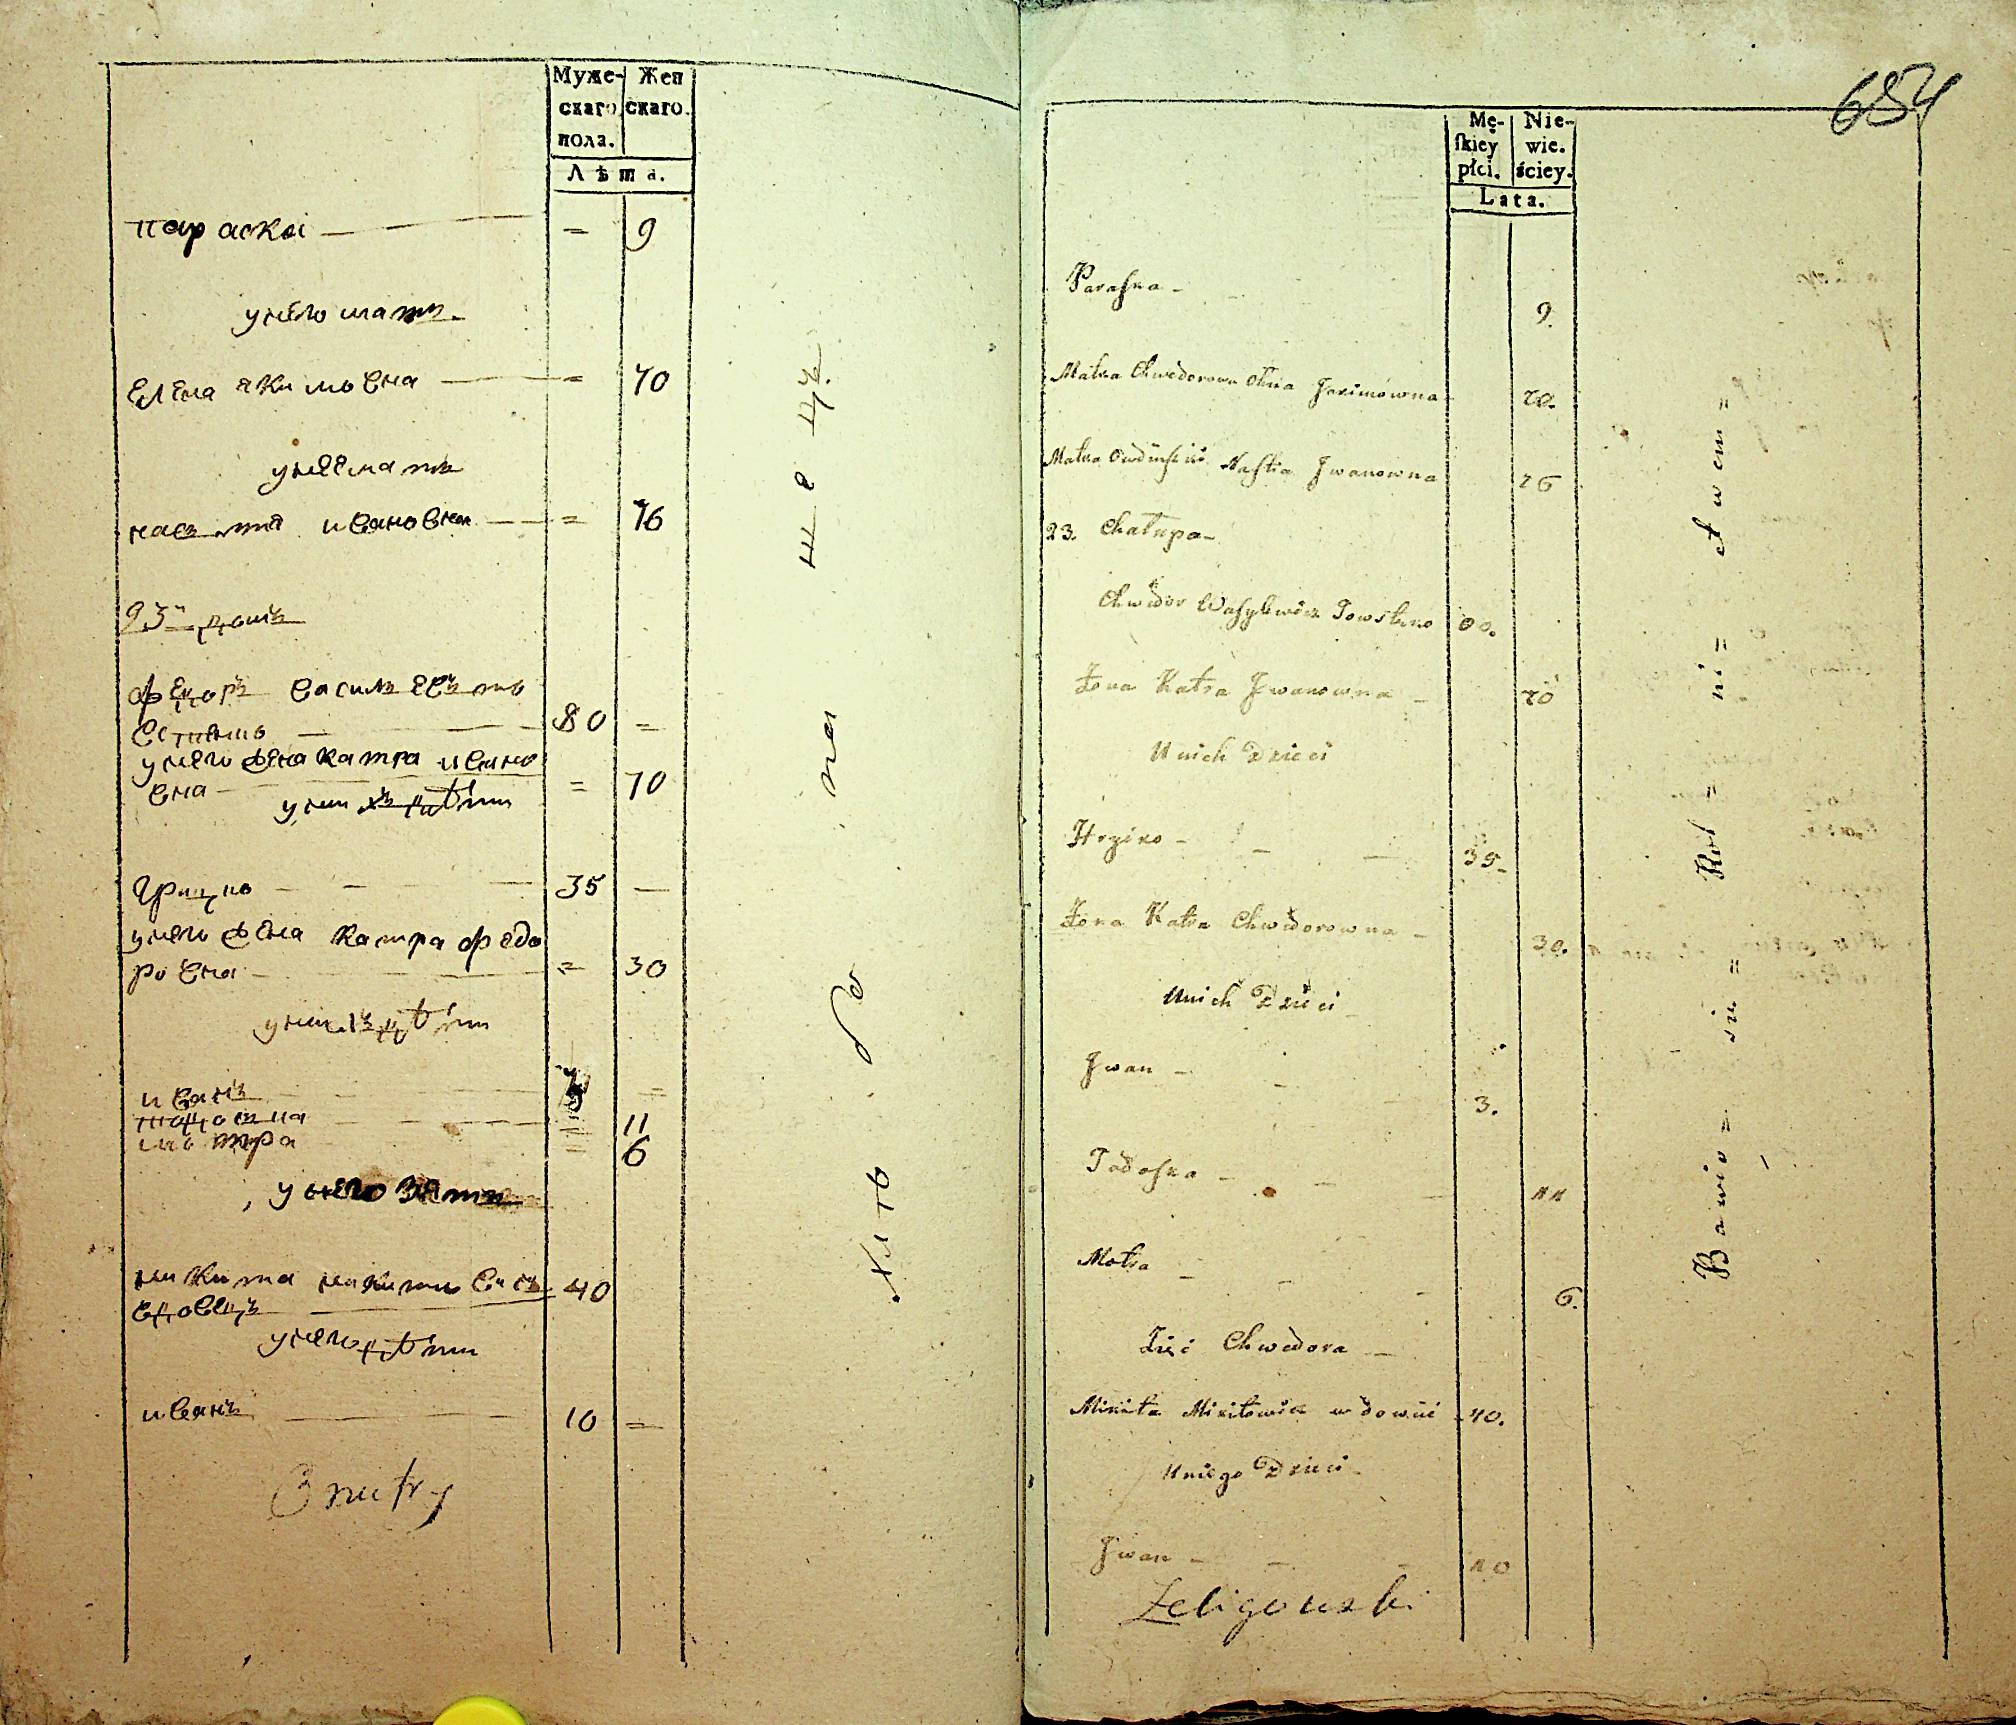 Муже- Жен
скаго скаго.
пола.
Лѣта.
параска — — = 9
унего мать.
Елена якимовна — = 70
унеемать
настя ивановна — = 76
23й домъ
Федоръ васильевъ
80 =
унего жена катра ивано
вна — = 70
унихъ дѣти
Грицко — — — 35 —
унего жена катра федо
ровна — = 30
унихъ дѣти
иванъ — — =
тодоска — — = 11
мотра = 6
унего зять
никита никитовичъ 40
вдовецъ —
унего дѣти
иванъ — 10 =
же на
684
Mę- Nie-
skiey wie.
płci. ściey.
Lata.
Paraska - 9.
Matka Chwedorowa Jakimowna 70.
Matka Nastia Jwanowna 76
23. Chałupa-
Chwedor Wasylewicz 80.
Żona Katra Jwanowna - 70
Unich Dzieci
Hryzko - - - 35-
Żona Katra Chwedorowna - 30.
Unich Dzieci
Jwan - - 3.
Todoska - - - 11
Motra - - - 6.
Zięć Chwedora -
Mikita Mikitowicz wdowiec 40.
Uniego Dzieci
Jwan - - - 10
Żeligowski
Bawio= się= Rol= ni= ctwem=